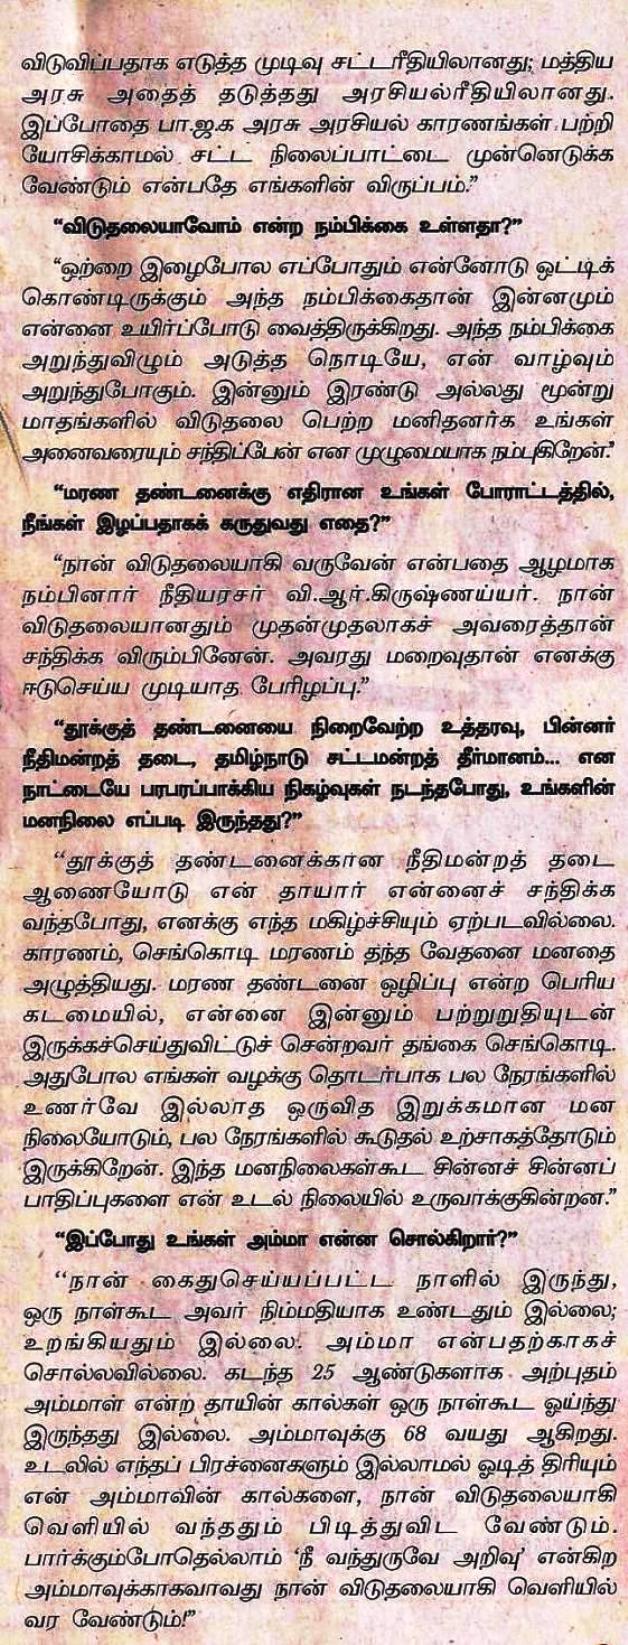 விடுவிப்பதாக எடுத்த முடிவு சட்டரீதியிலானது; மத்திய
அரசு அதைத் தடுத்தது அரசியல்ரீதியிலானது.
இப்போதை பா.ஜ.க அரசு அரசியல் காரணங்கள் பற்றி
யோசிக்காமல் சட்ட நிலைப்பாட்டை முன்னெடுக்க
வேண்டும் என்பதே எங்களின் விருப்பம்.”
“விடுதலையாவோம் என்ற நம்பிக்கை உள்ளதா?”
“ஒற்றை இழைபோல எப்போதும் என்னோடு ஒட்டிக்
கொண்டிருக்கும் அந்த நம்பிக்கைதான் இன்னமும்
என்னை உயிர்ப்போடு வைத்திருக்கிறது. அந்த நம்பிக்கை
அறுந்துவிழும் அடுத்த நொடியே, என் வாழ்வும்
அறுந்துபோகும். இன்னும் இரண்டு அல்லது மூன்று
மாதங்களில் விடுதலை பெற்ற மனிதனாக உங்கள்
அனைவரையும் சந்திப்பேன் என முழுமையாக நம்புகிறேன்.”
“மரண தண்டனைக்கு எதிரான உங்கள் போராட்டத்தில்,
நீங்கள் இழப்பதாகக் கருதுவது எதை?”
“நான் விடுதலையாகி வருவேன் என்பதை ஆழமாக
நம்பினார் நீதியரசர் வி.ஆர்.கிருஷ்ணய்யர். நான்
விடுதலையானதும் முதன்முதலாகச் அவரைத்தான்
சந்திக்க விரும்பினேன். அவரது மறைவுதான் எனக்கு
ஈடுசெய்ய முடியாத பேரிழப்பு.”
“தூக்குத் தண்டனையை நிறைவேற்ற உத்தரவு, பின்னர்
நீதிமன்றத் தடை, தமிழ்நாடு சட்டமன்றத் தீர்மானம்... என
நாட்டையே பரபரப்பாக்கிய நிகழ்வுகள் நடந்தபோது, உங்களின்
மனநிலை எப்படி இருந்தது?”
“தூக்குத் தண்டனைக்கான நீதிமன்றத் தடை
ஆணையோடு என் தாயார் என்னைச் சந்திக்க
வந்தபோது, எனக்கு எந்த மகிழ்ச்சியும் ஏற்படவில்லை.
காரணம், செங்கொடி மரணம் தந்த வேதனை மனதை
அழுத்தியது. மரண தண்டனை ஒழிப்பு என்ற பெரிய
கடமையில், என்னை இன்னும் பற்றுறுதியுடன்
இருக்கச்செய்துவிட்டுச் சென்றவர் தங்கை செங்கொடி.
அதுபோல எங்கள் வழக்கு தொடர்பாக பல நேரங்களில்
உணர்வே இல்லாத ஒருவித இறுக்கமான மன
நிலையோடும், பல நேரங்களில் கூடுதல் உற்சாகத்தோடும்
இருக்கிறேன். இந்த மனநிலைகள்கூட சின்னச் சின்னப்
பாதிப்புகளை என் உடல் நிலையில் உருவாக்குகின்றன.”
“இப்போது உங்கள் அம்மா என்ன சொல்கிறார்?”
“நான் கைதுசெய்யப்பட்ட நாளில் இருந்து,
ஒரு நாள்கூட அவர் நிம்மதியாக உண்டதும் இல்லை;
உறங்கியதும் இல்லை. அம்மா என்பதற்காகச்
சொல்லவில்லை. கடந்த 25 ஆண்டுகளாக அற்புதம்
அம்மாள் என்ற தாயின் கால்கள் ஒரு நாள்கூட ஓய்ந்து
இருந்தது இல்லை. அம்மாவுக்கு 68 வயது ஆகிறது.
உடலில் எந்தப் பிரச்னைகளும் இல்லாமல் ஓடித் திரியும்
என் அம்மாவின் கால்களை, நான் விடுதலையாகி
வெளியில் வந்ததும் பிடித்துவிட வேண்டும்.
பார்க்கும்போதெல்லாம் ‘நீ வந்துருவே அறிவு’ என்கிற
அம்மாவுக்காகவாவது நான் விடுதலையாகி வெளியில்
வர வேண்டும்!”